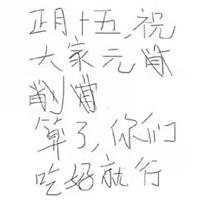 正月十五,祝
大家元肖
削
算了,你们
吃好就行